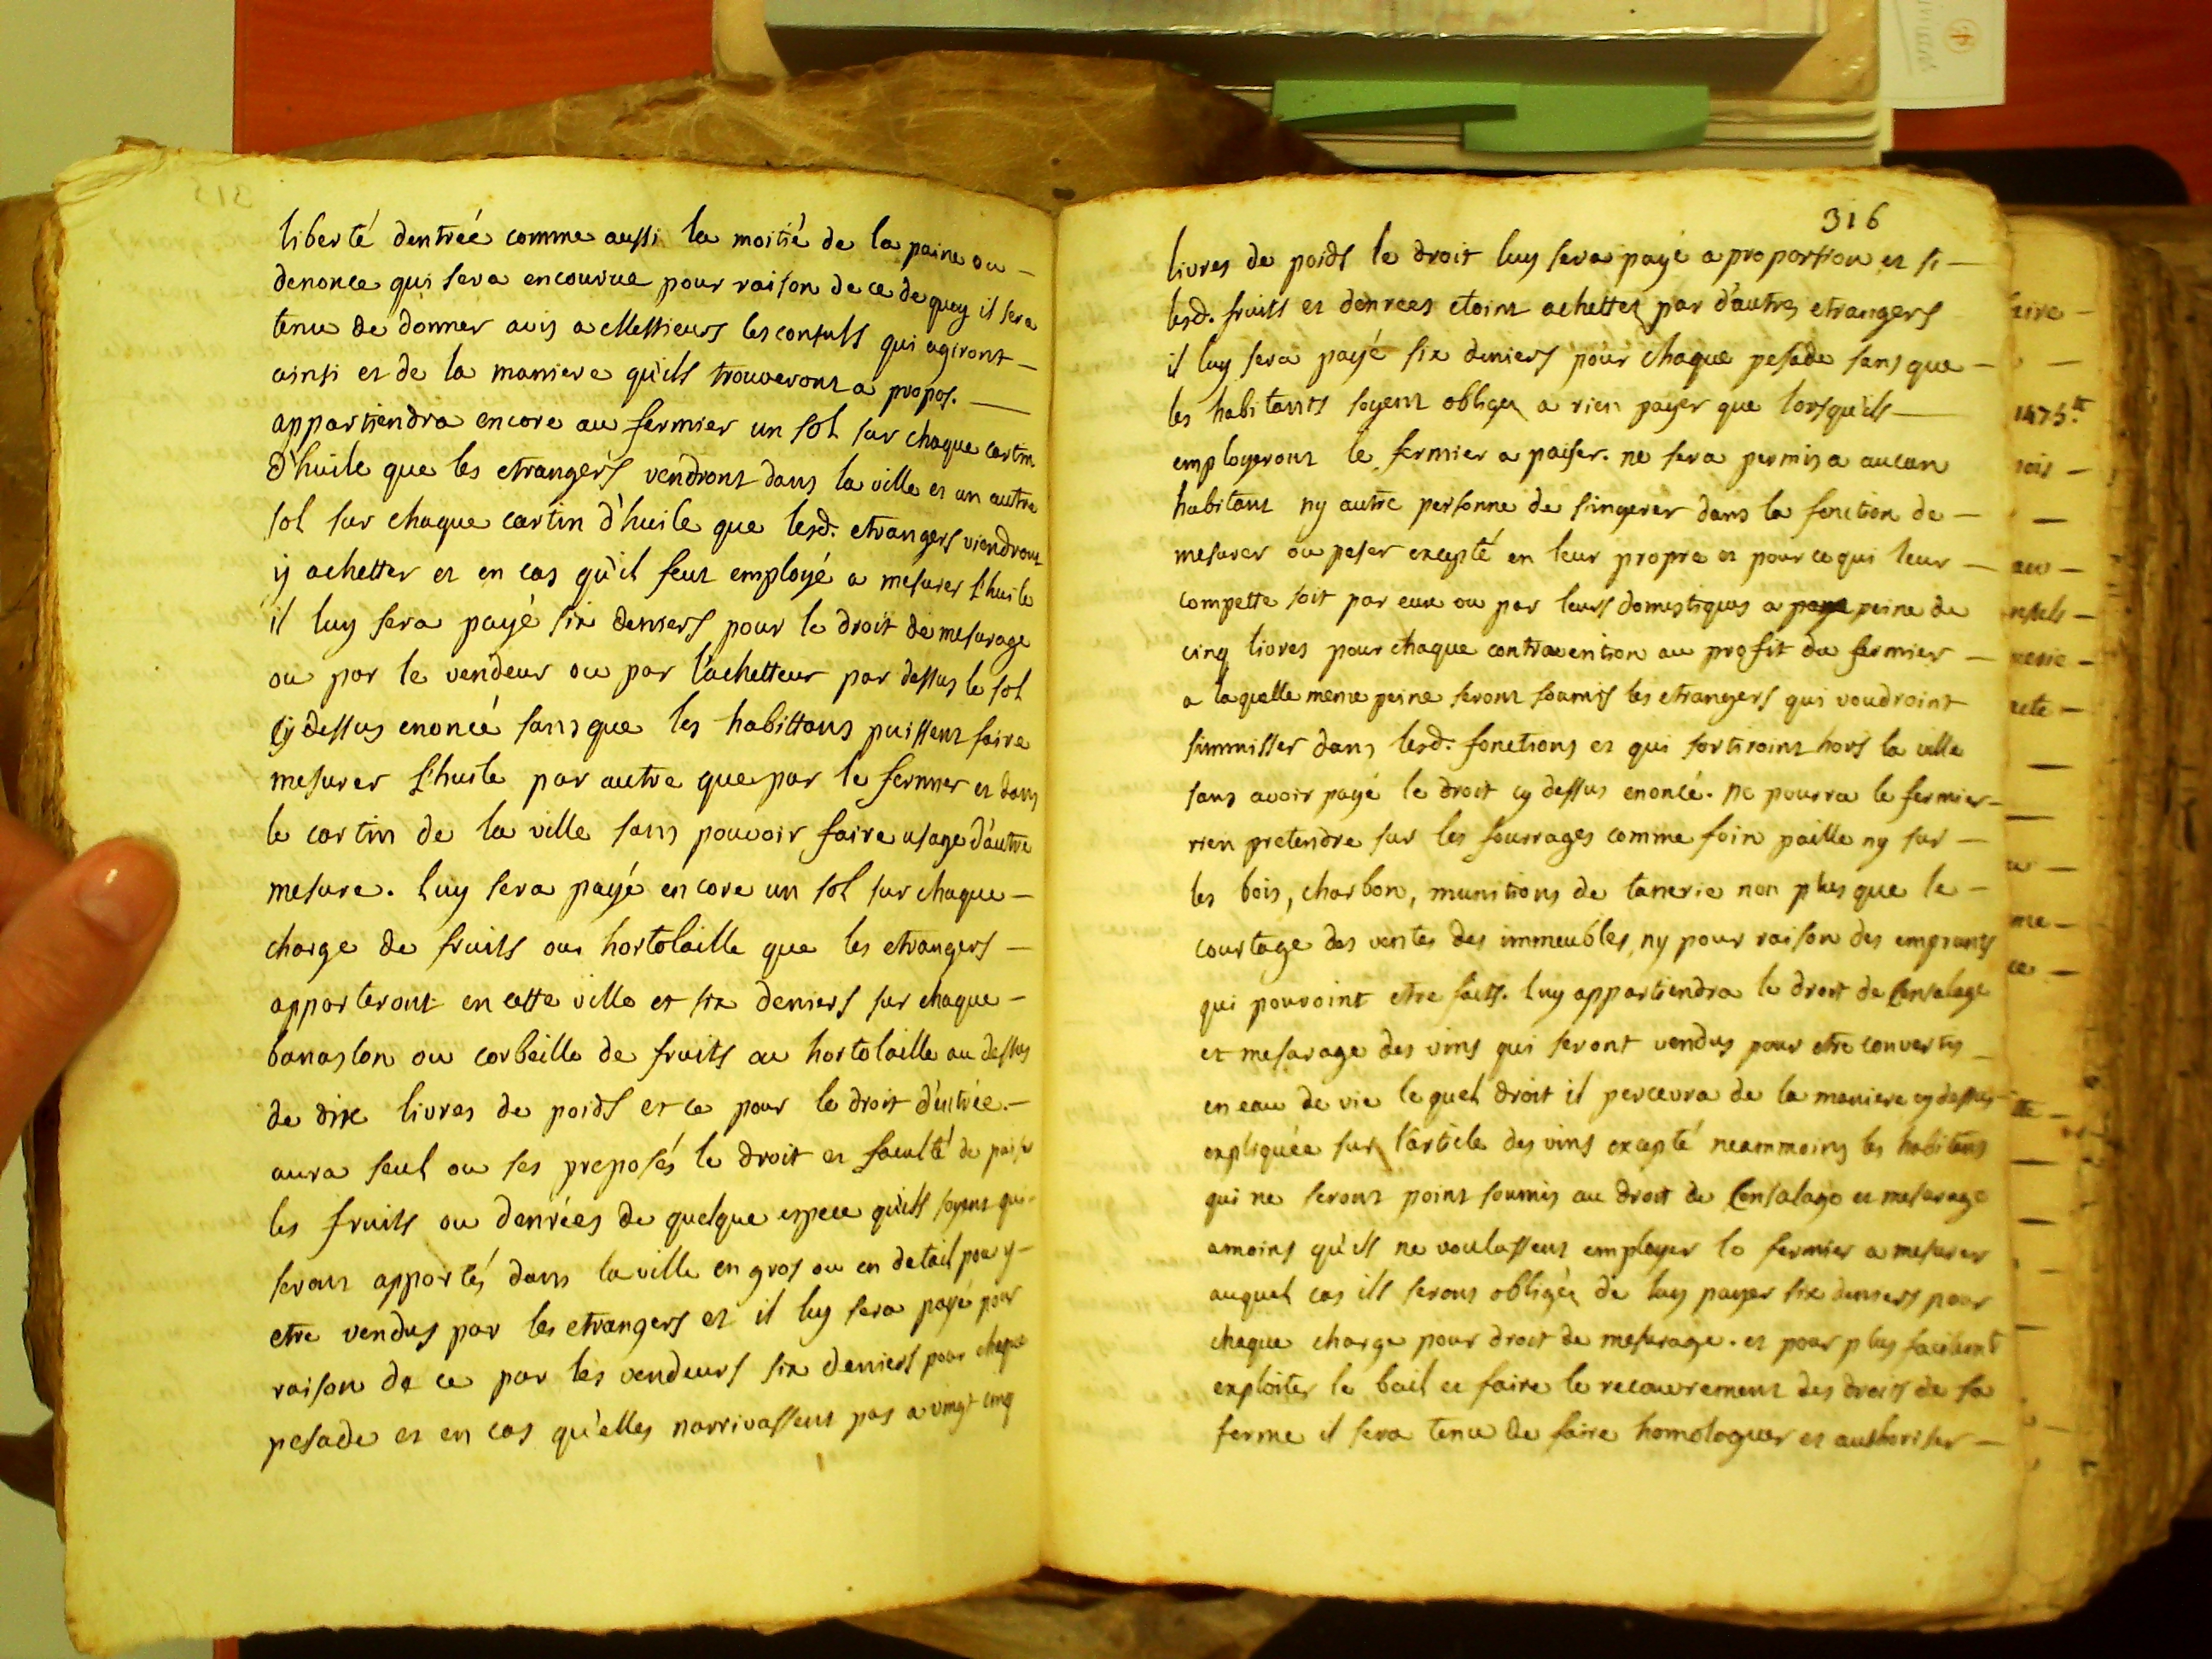 liberté dentrée comme aussi la moitié de la paine ou —
denonce qui sera encourue pour raison de ce de quoy il sera
tenu de donner avis a Messieurs les consuls qui agiront —
ainsi et de la maniere qu'ils trouveront a propos. —
appartiendra encore au fermier un sol sur chaque cartin
d'huile que les etrangers vendront dans la ville et un autre
sol sur chaque cartin d'huile que lesd. etrangers viendront
ij achetter et en cas qu'il feut employé a mesurer l'huile
il luy sera payé six deniers pour le droit de mesurage
ou par le vendeur ou par l'achetteur par dessus le sol
cy dessus enoncé sans que les habittans puissent faire
mesurer l'huile par autre que par le fermier et dans
le cartin de la ville sans pouvoir faire usage d'autre
mesure. luy sera payé encore un sol sur chaque —
charge de fruits ou hortolaille que les etrangers —
apporteront en cette ville et six deniers sur chaque —
banaston ou corbeille de fruits ou hortolaille au dessus
de dix livres de poids et ce pour le droit d'entrée. —
aura seul ou ses preposés le droit et faculté de paiser
les fruits ou denrées de quelque espece qu'ils soyent qui
seront apportés dans la ville en gros ou en detail pour y —
etre vendus par les etrangers et il luy sera payé pour
raison de ce par les vendeurs six deniers pour chaque
pesade et en cas qu'elles narrivassent pas a vingt cinq
316
livres de poids le droit luy sera payé a proportion et si —
lesd. fruits et denrees etoint achettez par d'autres etrangers
il luy sera payé six deniers pour chaque pesade sans que —
les habitants soyent obligez a rien payer que lorsqu'ils —
employeront le fermier a paiser. ne sera permis a aucun
habitant ny autre personne de singerer dans la fonction de —
mesurer ou peser excepté en leur propre et pour ce qui leur —
compette soit par eux ou par leurs domestiques a peine de
cinq livres pour chaque contravention au profit du fermier —
a laquelle meme peine seront soumis les etrangers qui voudroint
simmisser dans lesd. fonctions et qui sortiroint hors la ville
sans avoir payé le droit cy dessus enoncé. ne pourra le fermier —
rien pretendre sur les fourrages comme foin paille ny sur —
les bois, charbon, munitions de tanerie non plus que le —
courtage des ventes des immeubles, ny pour raison des emprunts
qui pouroint etre faits. luy appartiendra le droit de Censalage
et mesurage des vins qui seront vendus pour etre convertis —
en eau de vie lequel droit il percevra de la maniere cy dessus
expliquée sur l'article des vins excepté neammoins les habitans
qui ne seront point soumis au droit de Censalage et mesurage
amoins qu'ils ne voulassent employer le fermier a mesurer
auquel cas ils seront obligez de luy payer six deniers pour
chaque charge pour droit de mesurage. et pour plus faciliemt
exploiter le bail et faire le recouvrement des droits de sa
ferme il sera tenu de faire homologuer et authoriser —
1475.tt